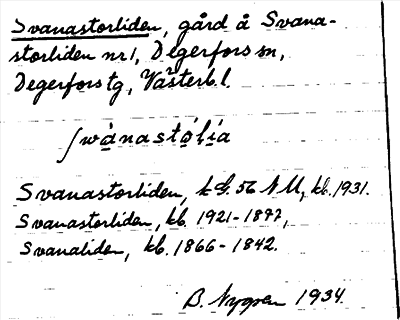 Svanastorliden, gård å Svana-
storliden nr 1, Degerfors sn,
Degerfors tg, Västerb. l.
ʃwànastó̩lìa
Svanastorliden, k 56 NU, kb. 1931.
Svanastorliden, kb. 1921-1897,
Svanaliden, kb. 1866-1842.
B. Nygren 1934.